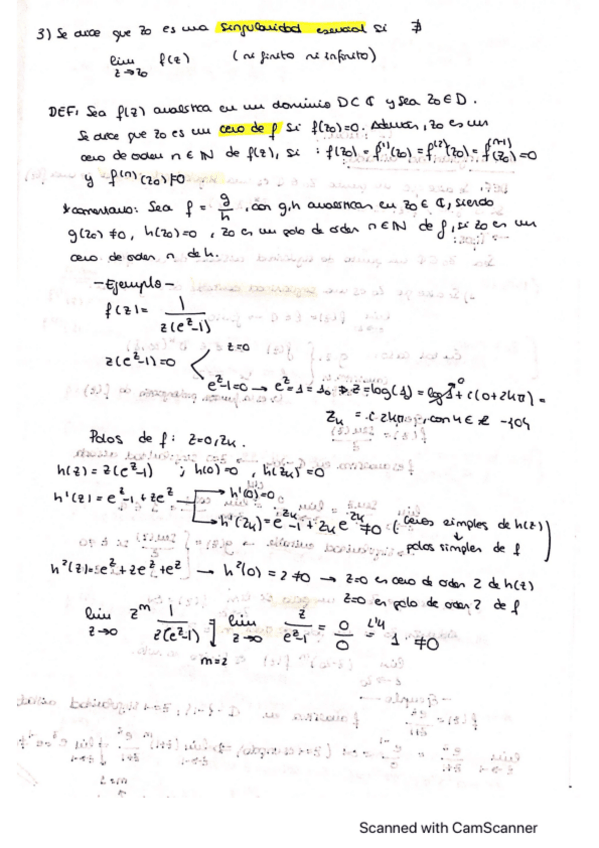 3) Se dice que z₀ es una singularidad esencial si ∄
lim z→z₀ f(z) (ni finito ni infinito)
DEF: Sea f(z) analítica en un dominio D⊂ℂ y sea z₀∈D.
Se dice que z₀ es un cero de f si f(z₀)=0. Además, z₀ es un
cero de orden n∈ℕ de f(z), si : f(z₀) = f⁽¹⁾(z₀) = f⁽²⁾(z₀) = f⁽ⁿ⁻¹⁾(z₀) = 0
y f⁽ⁿ⁾(z₀)≠0
*comentario: Sea f = g/h, con g,h analíticas en z₀∈ℂ, siendo
g(z₀)≠0, h(z₀)=0, z₀ es un polo de orden n∈ℕ de f, si z₀ es un
cero de orden n de h.
-Ejemplo-
f(z) = 1/z(e^z-1)
z(e^z-1)=0
z=0
e^z-1=0 → e^z=1 z=log(1) = log1 + i(0+2kπ) =
z_k = i2kπ, con k∈ℤ -{0}
Polos de f: z=0, z_k.
h(z) = z(e^z-1) ; h(0)=0, h(z_k)=0
h'(z) = e^z-1 + ze^z → h'(0)=0
→ h'(z_k) = e^{z_k}-1 + z_k e^{z_k} ≠0 (ceros simples de h(z)
↓
polos simples de f)
h²(z) = e^z + ze^z + e^z → h²(0) = 2 ≠0 → z=0 es cero de orden 2 de h(z)
z=0 es polo de orden 2 de f
lim z→0 z^m 1/z(e^z-1) ] m=2 lim z→0 z/e^z-1 = 0/0 L'H = 1 ≠0
Scanned with CamScanner